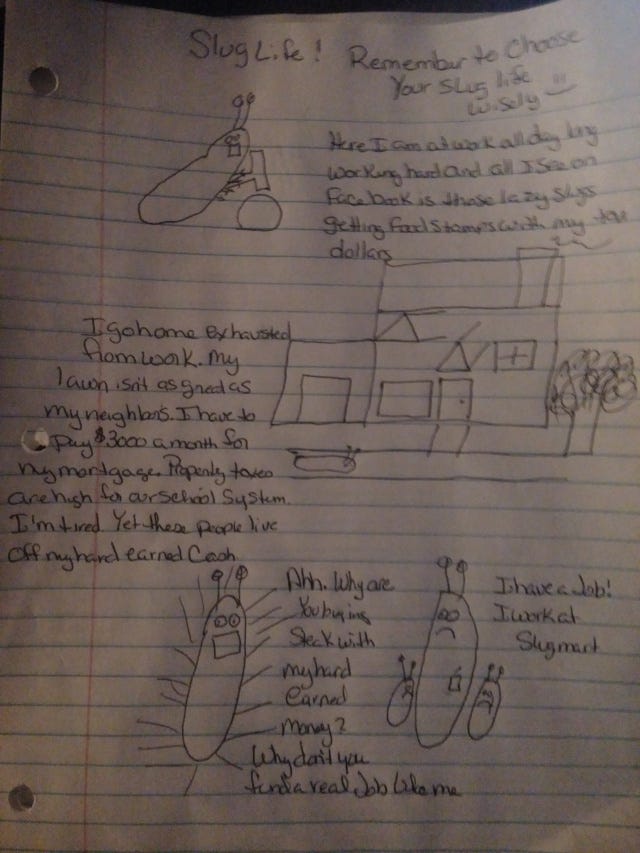 Slug Life!
Remembur to Choose
Your Slug life
wisely
Here I am at work all day long
working hard and all I see on
facebook is those lazy slugs
getting food stamps with my tax
dollars
I go home exhausted
from work. My
lawn isn't as great as
my neighbors. I have to
pay $3000 a month for
my mortgage. Property taxes
are high for our school system.
I'm tired. Yet these people live
off my hard earned Cash
Ahh. Why are
You buying
Steak with
my hard
earned
money?
Why don't you
find a real Job like me
I have a Job!
I work at
Slugmart